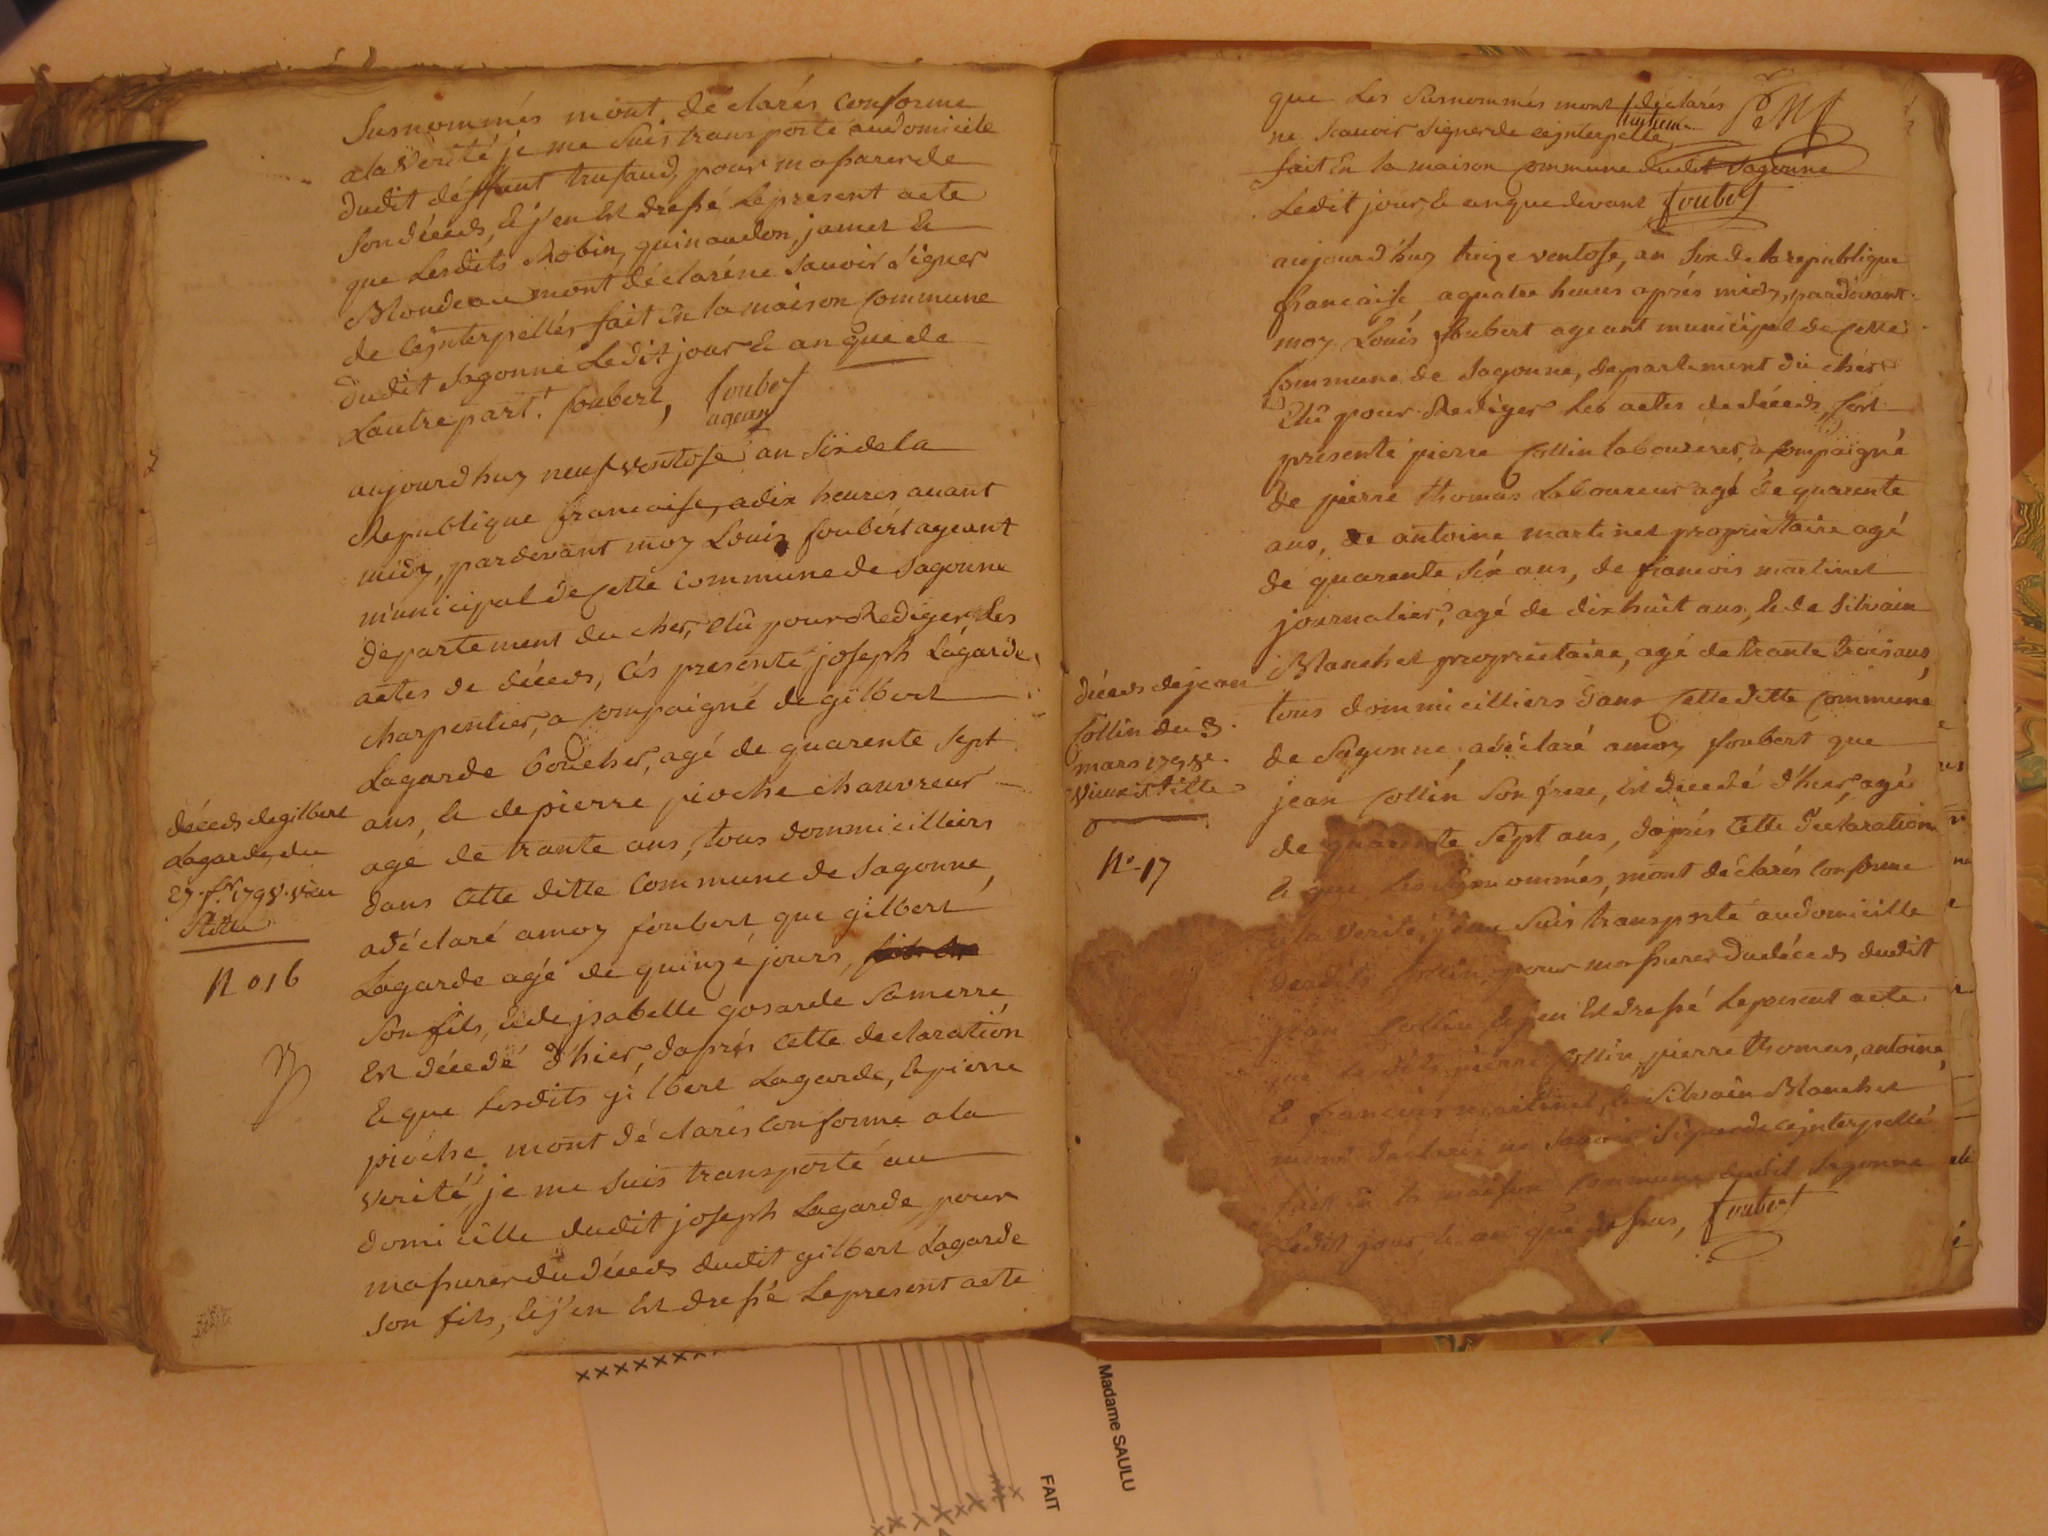 Susnommés mont déclarés conforme
ala Vérité je me suis transporté audomicile
dudit déffunt trufaud, pour massurer de
son décéds, & j'en Est dressé Lepresent acte
que Lesdits Robin, quinaudon, jamet &
Blondeau mont déclaréne Sauoir Signer
de cejnterpellés fait En la maison Commune
dudit Sagonne Ledit jour & an que de
Lautre part. foubert, foubert
ageant
aujourdhuy neuf ventose an Sixdela
Republique francaise, adix heures auant
midy, pardevant moy Louis foubért ageant
municipal de Cette Commune de Sagonne
département du cher, élû pour Rediger Les
actes de décéds, cés presenté joseph Lagarde
charpentier, a Compaigné de gilbert
Lagarde boucher, agé de quarente Sept
ans, & de pierre pioche chauvreur
agé de trante ans, tous dommicilliers
dans Cette ditte Commune de Sagonne,
adéclaré amoy foubert que gilbert
Lagarde agé de quinze jours,
Son fils, & de jsabelle gosarde Samerre
Est décedé d'hier, daprés cette declaration
& que Lesdits gilbert Lagarde, & pierre
pioche mont déclarés Conforme ala
Verité, je me suis transporté au
domicille dudit joseph Lagarde, pour
massurer du décéds dudit gilbert Lagarde
son fils, & j'en Est dressé Lepresent acte
décéds de gilbert
Lagarde, du
27. fr. 1798. vieu
Stille
N 016
que Les Susnommés mont déclarés
ne Scauoir Signer de cejnterpellé,
fait En la maison Commune dudit Sagonne
Ledit jour & an que devant foubert
aujourd'huy treize ventose, an Six de la republique
francaise, aquatre heures aprés midy, pardevant
moy Louis foubert ageant municipal de Cette
Commune de Sagonne, departement du cher
Elû pour Rediger Les actes de décéds, Cest
presenté pierre Collin laboureur, a Compaigné
de pierre thomas Laboureur agé de quarente
ans, de antoine martinet propriétaire agé
de quarente Six ans, de francois martinet
journalier, agé de dix huit ans, & de Silvain
Blanchet propriétaire, agé de trante trois ans,
tous dommicilliers dans Cette ditte Commune
de Sagonne, adéclaré amoy foubert que
jean Collin Son frere, Est décedé d'hier, agé
de quarente Sept ans, daprés Cette declaration
& que Les Susnommés, mont déclarés Conforme
ala verité, Suis transporté audomicille
Collin, pour massurer du décéds dudit
jean Collin & jen Est dressé Lepresent acte
que Lesdits pierre Collin, pierre thomas, antoine,
& francois martinet, & Silvain Blanchet
mont déclarés ne Sauoir Signer de cejnterpellé
fait En la maison Commune dudit Sagonne
Ledit jour & an que dessus, foubert
décéds de jean
Collin du 3.
mars 1798.
Vieux Stille
N. 17
Madame SAULU
FAIT